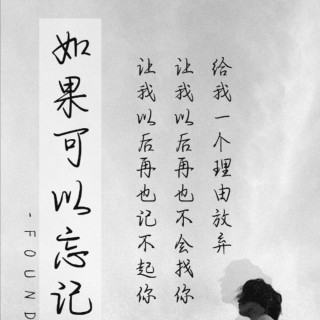 如果可以忘记
给我一个理由放弃
让我以后再也不会找你
让我以后再也记不起你
- FOUND